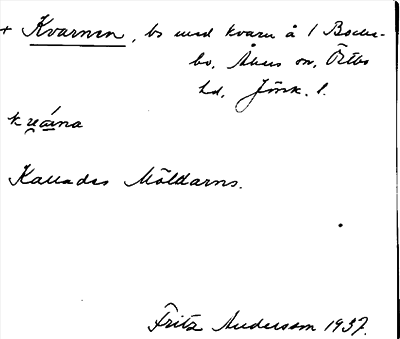 + Kvarnen, bs med kvarn å 1 Bocke-
bo, Åkers sn, Östbo
hd, Jönk. l.
kveána
Kallades Möldarns.
Fritz Andersson 1937.